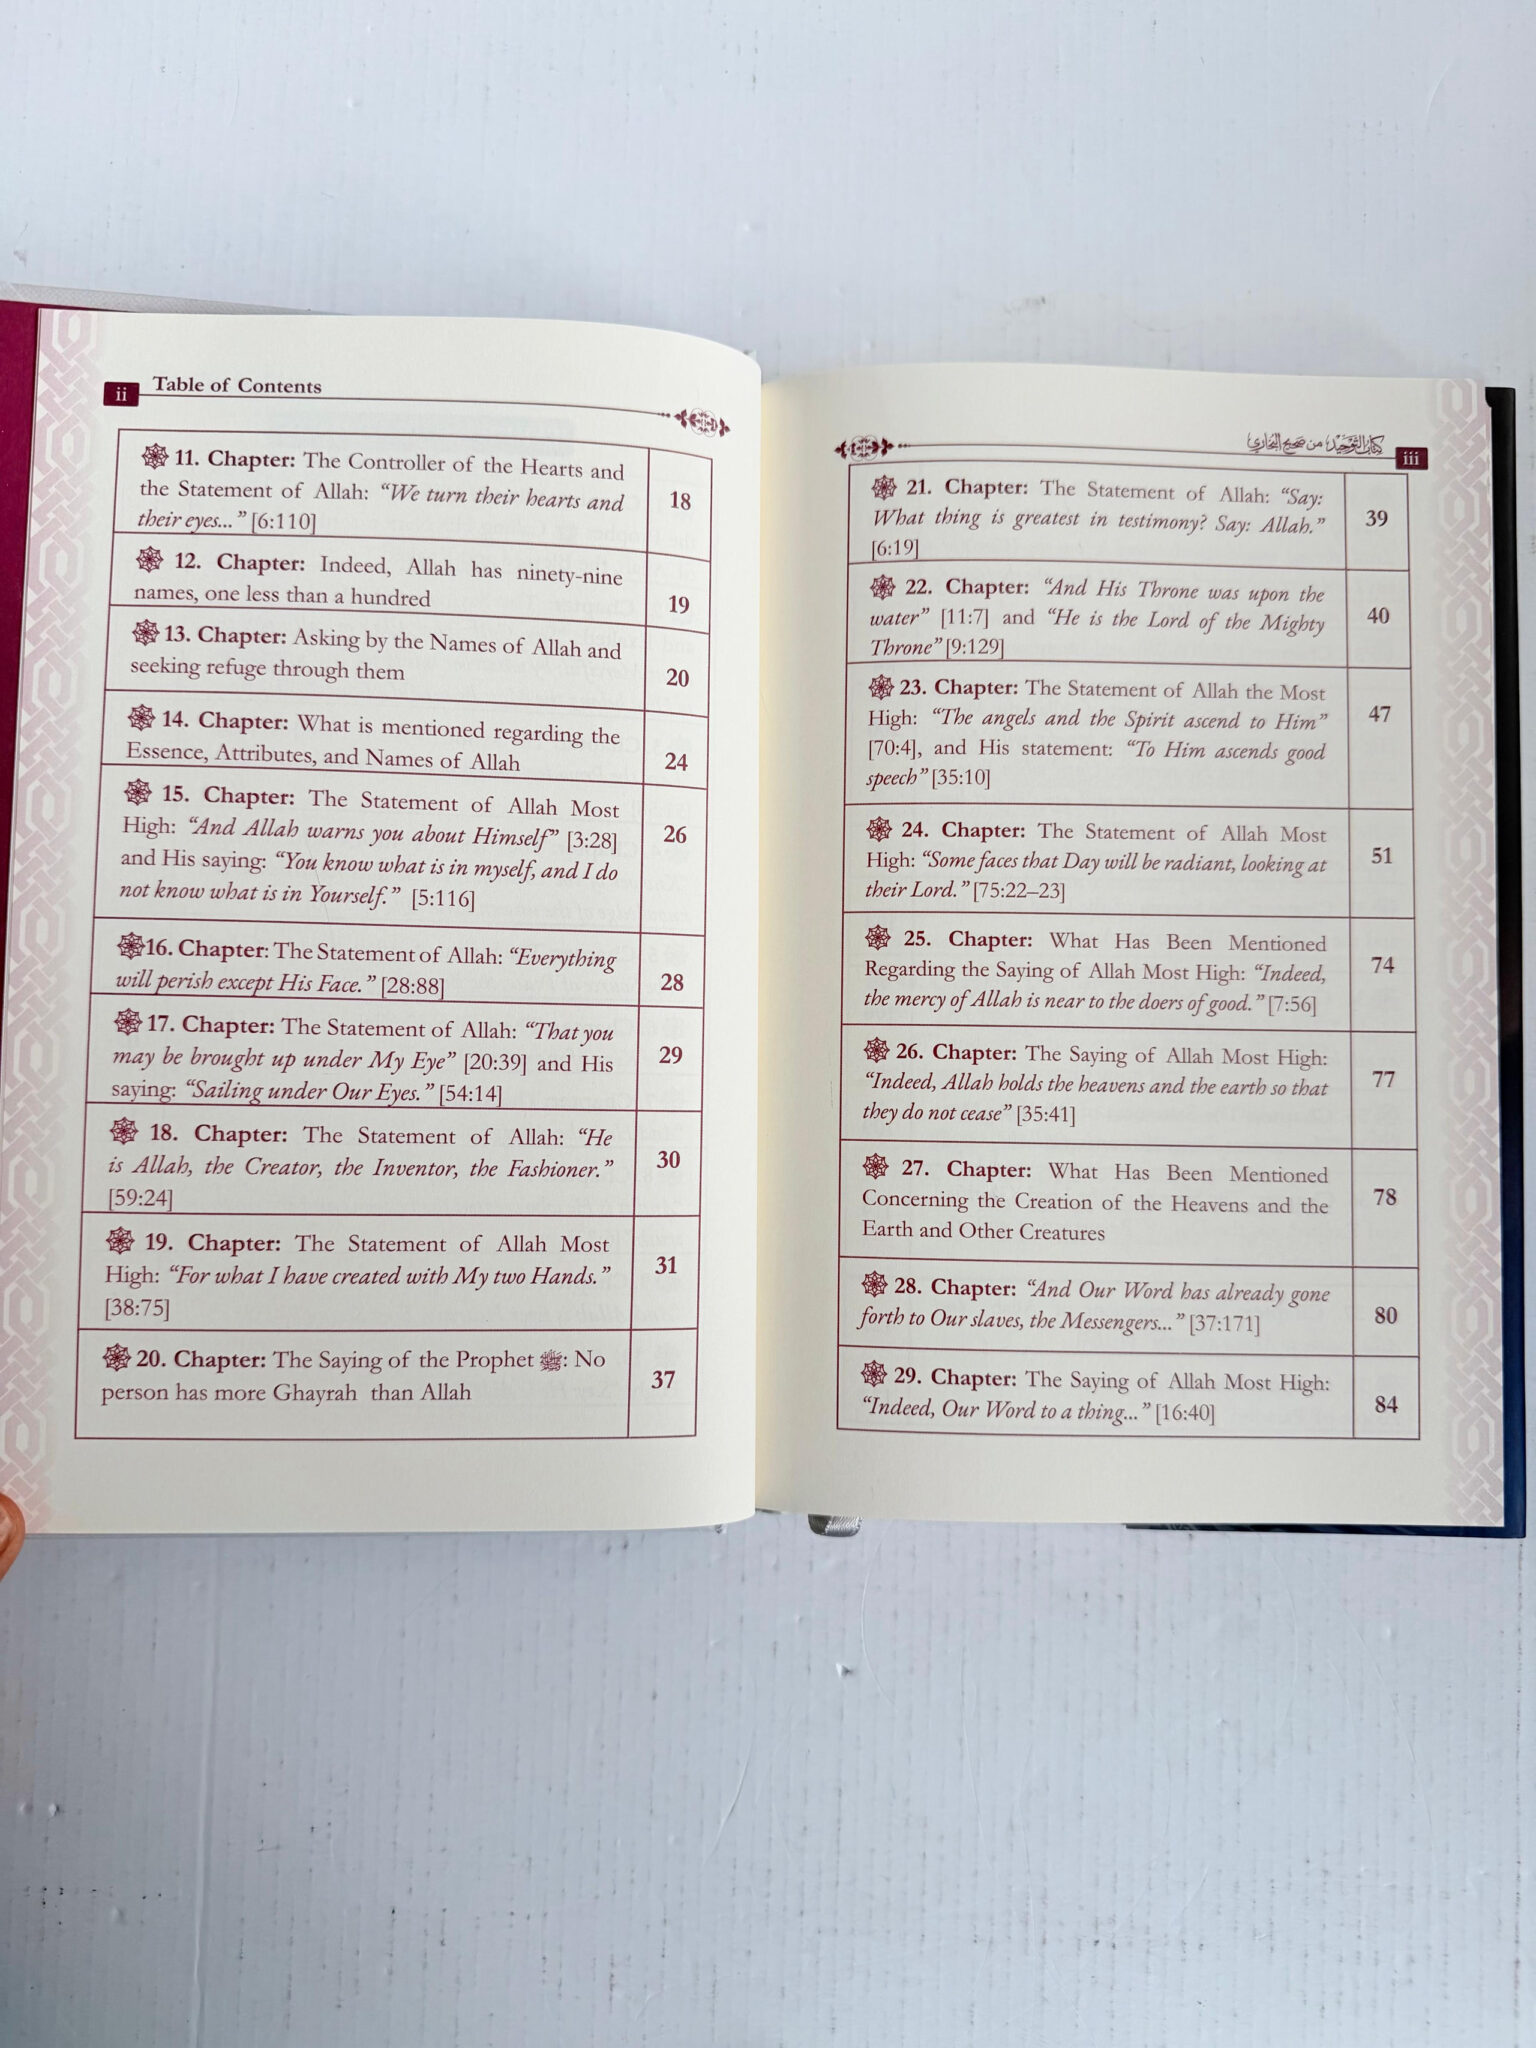 ii
Table of Contents
11. Chapter: The Controller of the Hearts and
the Statement of Allah: “We turn their hearts and
their eyes...” [6:110]
18
12. Chapter: Indeed, Allah has ninety-nine
names, one less than a hundred
19
13. Chapter: Asking by the Names of Allah and
seeking refuge through them
20
14. Chapter: What is mentioned regarding the
Essence, Attributes, and Names of Allah
24
15. Chapter: The Statement of Allah Most
High: “And Allah warns you about Himself” [3:28]
and His saying: “You know what is in myself, and I do
not know what is in Yourself.” [5:116]
26
16. Chapter: The Statement of Allah: “Everything
will perish except His Face.” [28:88]
28
17. Chapter: The Statement of Allah: “That you
may be brought up under My Eye” [20:39] and His
saying: “Sailing under Our Eyes.” [54:14]
29
18. Chapter: The Statement of Allah: “He
is Allah, the Creator, the Inventor, the Fashioner.”
[59:24]
30
19. Chapter: The Statement of Allah Most
High: “For what I have created with My two Hands.”
[38:75]
31
20. Chapter: The Saying of the Prophet ﷺ: No
person has more Ghayrah than Allah
37
كتاب التوحيد من صحيح البخاري
iii
21. Chapter: The Statement of Allah: “Say:
What thing is greatest in testimony? Say: Allah.”
[6:19]
39
22. Chapter: “And His Throne was upon the
water” [11:7] and “He is the Lord of the Mighty
Throne” [9:129]
40
23. Chapter: The Statement of Allah the Most
High: “The angels and the Spirit ascend to Him”
[70:4], and His statement: “To Him ascends good
speech” [35:10]
47
24. Chapter: The Statement of Allah Most
High: “Some faces that Day will be radiant, looking at
their Lord.” [75:22–23]
51
25. Chapter: What Has Been Mentioned
Regarding the Saying of Allah Most High: “Indeed,
the mercy of Allah is near to the doers of good.” [7:56]
74
26. Chapter: The Saying of Allah Most High:
“Indeed, Allah holds the heavens and the earth so that
they do not cease” [35:41]
77
27. Chapter: What Has Been Mentioned
Concerning the Creation of the Heavens and the
Earth and Other Creatures
78
28. Chapter: “And Our Word has already gone
forth to Our slaves, the Messengers...” [37:171]
80
29. Chapter: The Saying of Allah Most High:
“Indeed, Our Word to a thing...” [16:40]
84